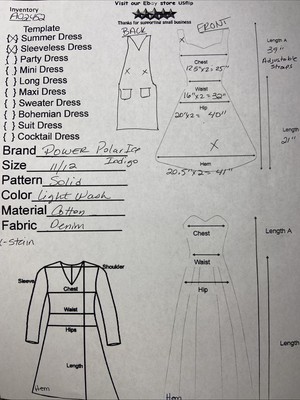 Visit our Ebay store USRip
Thanks for supporting small business
Inventory
Template
(X) Summer Dress
(X) Sleeveless Dress
{ } Party Dress
{ } Mini Dress
{ } Long Dress
{ } Maxi Dress
{ } Sweater Dress
{ } Bohemian Dress
{ } Suit Dress
{ } Cocktail Dress
Brand POWER Polar Ice
Indigo
Size 11/12
Pattern Solid
Color Light Wash
Material Cotton
Fabric Denim
-Stain
BACK
X X
FRONT
Chest
12.5"x2=25"
Waist
16"x2=32"
Hip
20"x2= 40"
X
Hem
20.5"x2=41"
Length A
39"
Adjustable
Straps
Length
21"
Sleeve
Shoulder
Chest
Waist
Hips
Length
Hem
Chest
Waist
Hip
Hem
Length A
Length